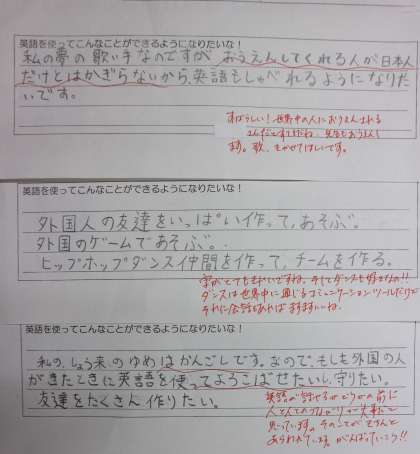 英語を使ってこんなことができるようになりたいな！
私の夢の歌い手なのですが おうえんしてくれる人が日本人
だけとはかぎらないから、英語もしゃべれるようになりた
いです。
すばらしい！世界中の人におうえんされる
ます。歌、きかせてほしいです。
英語を使ってこんなことができるようになりたいな！
外国人の友達をいっぱい作って、あそぶ。
外国のゲームであそぶ。
ヒップホップダンス仲間を作って、チームを作る。
字がとてもきれいですね。そしてダンスも好きなの!!
ダンスは世界中に通じるコミュニケーションツールだけど
それに会話があればますますいいね。
英語を使ってこんなことができるようになりたいな！
私の、しょう来のゆめはかんごしです。なので、もしも外国の人
がきたときに英語を使ってよろこばせたいし、守りたい。
友達をたくさん作りたい。
英語が話せるかどうかの前に
人と人とのつながりが大事と
思っています。そのことがきちんと
あらわれています。がんばっていこう!!